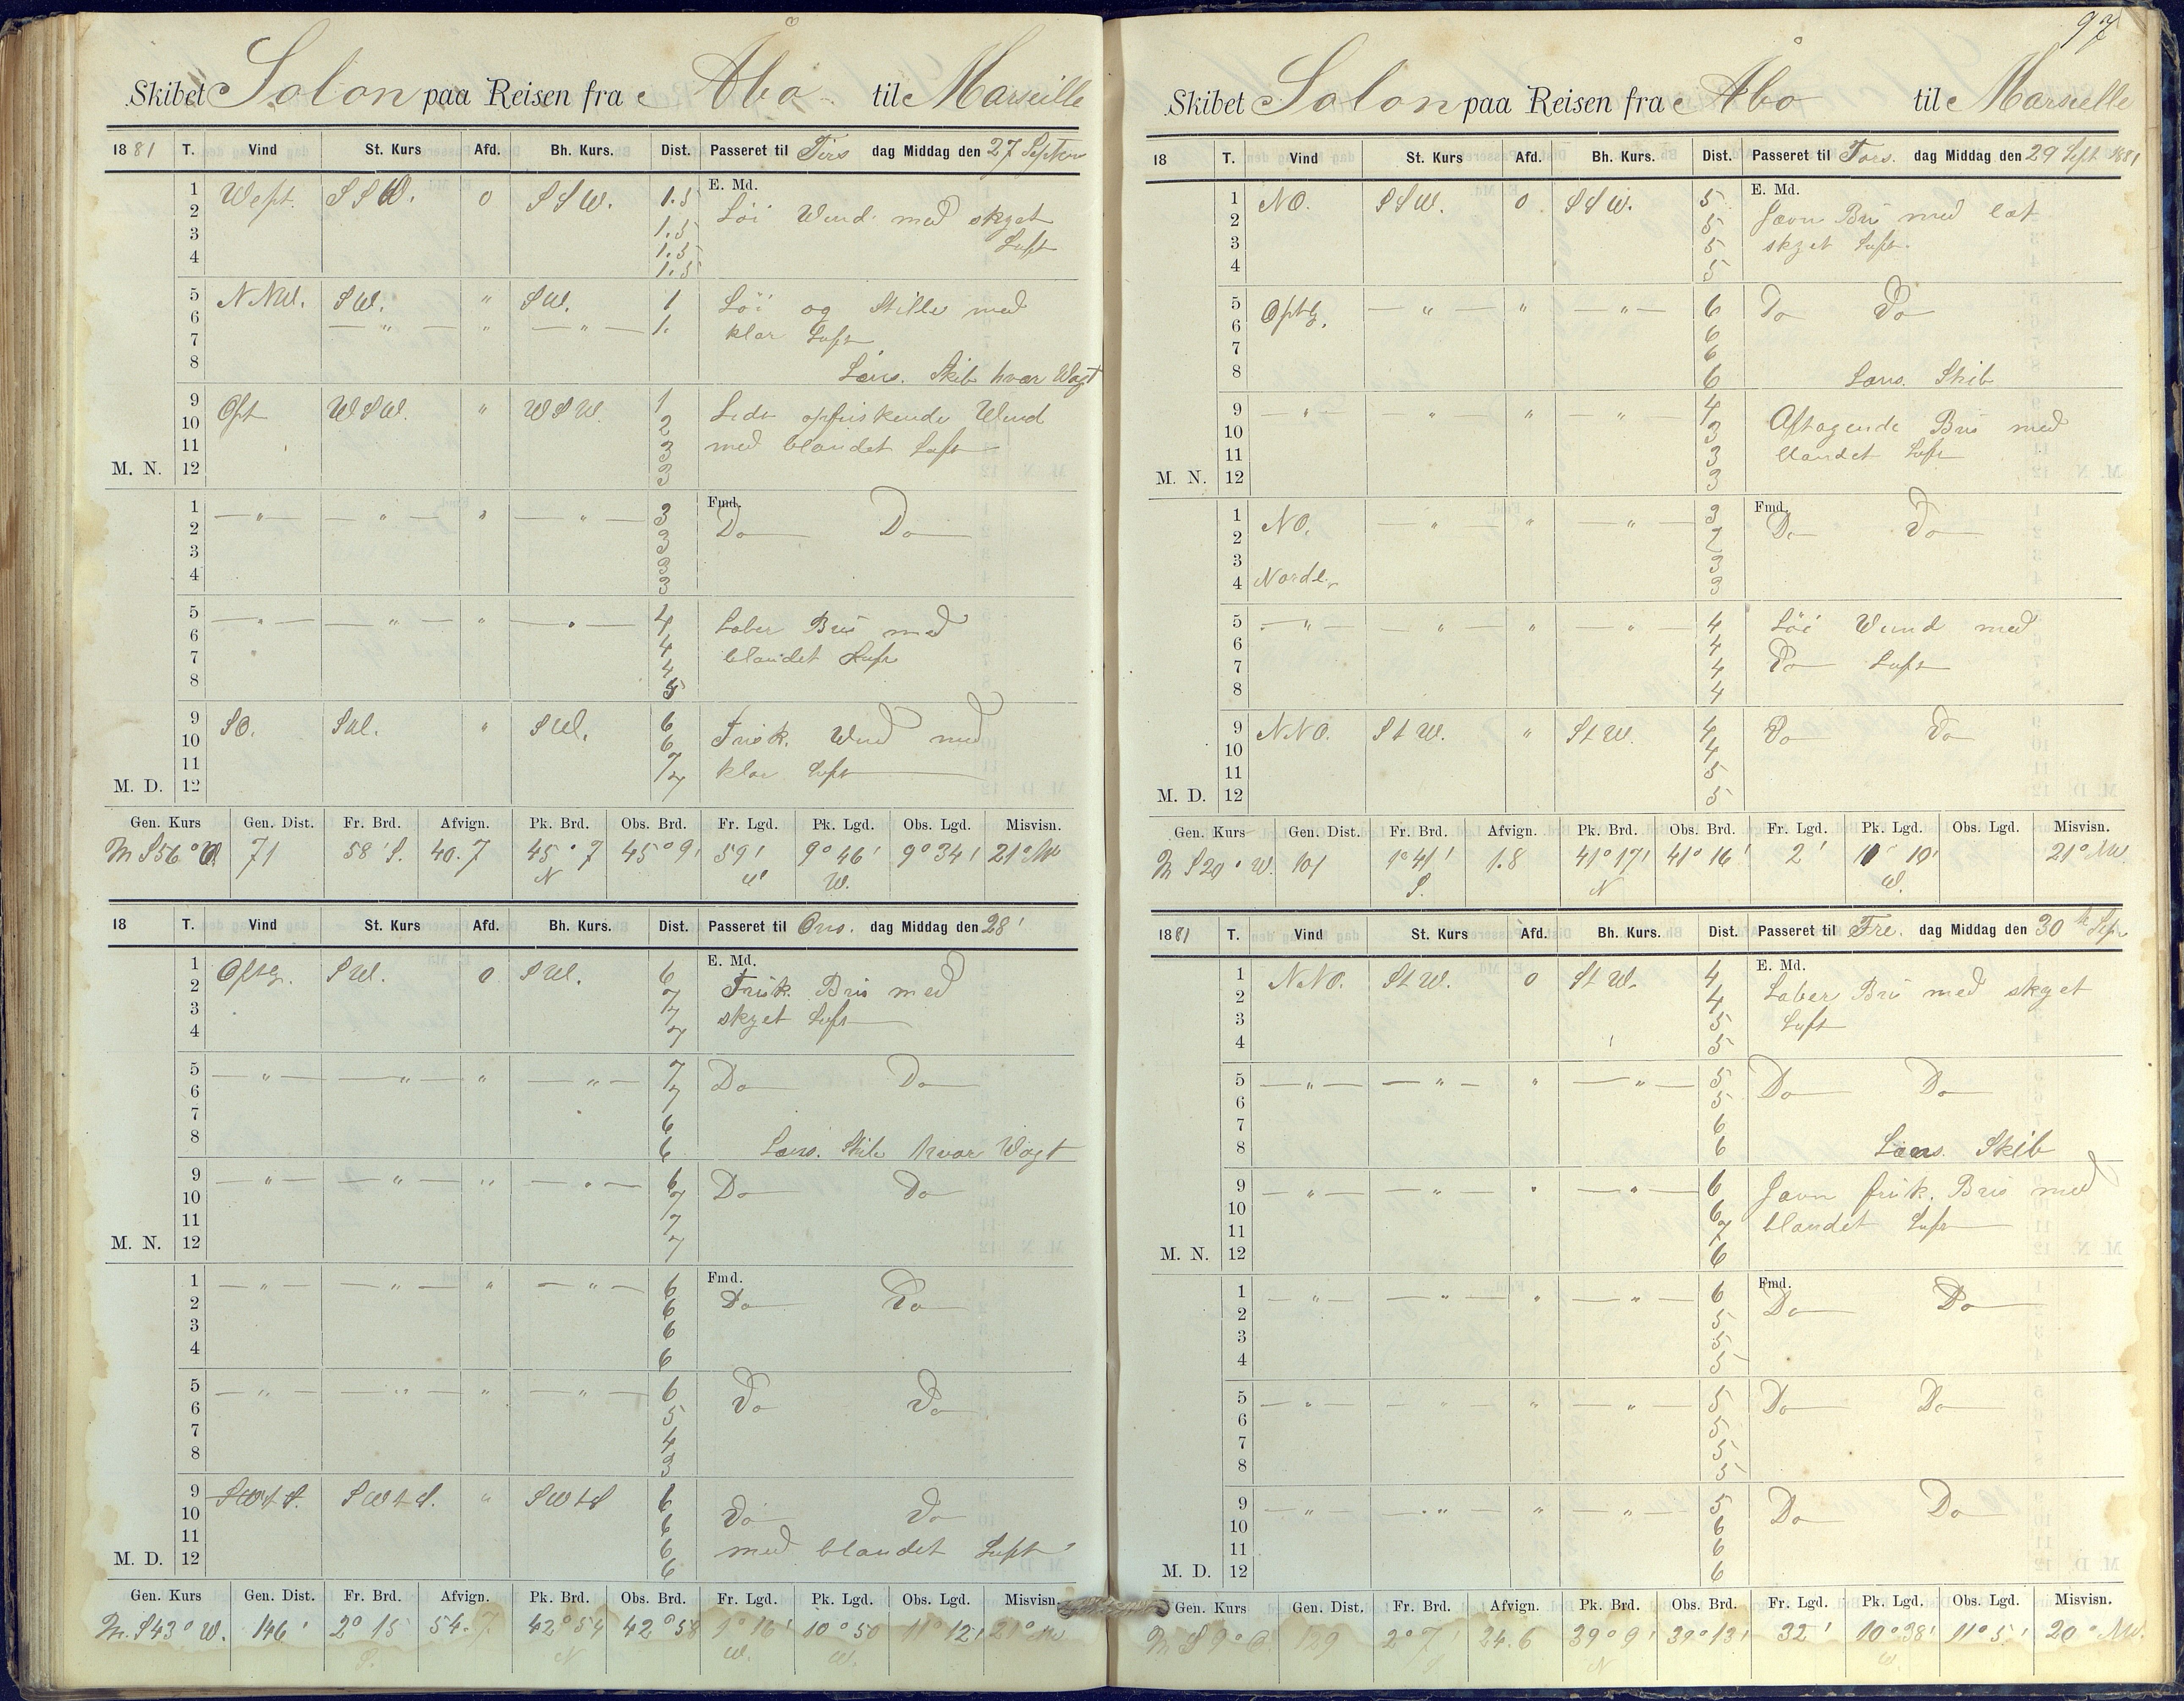 Skibet Solon paa Reisen fra Åbo til Marseille
1881 T. Vind St. Kurs Afd. Bh. Kurs. Dist. Passeret til Tirs dag Middag den 27 Septbr
E. Md.
1 West. SSW. 0 SSW. 1.5 Löi Wind med skyet
2 1.5 Luft
3 1.5
4 1.5
5 NNW. SW. " SW. 1 Löi og Stille med
6 — " — " — " — 1. klar Luft
7
8 Læns. Skib hver Wagt
9 Ost WSW. " WSW. 1 Lidt opfriskende Wind
10 2 med blandet Luft
11 3
M. N. 12 3
Fmd.
1 — " — — " — " — " — 3 Do Do
2 3
3 3
4 3
5 — " — — " — " — " — 4 Laber Bris med
6 4 blandet Luft
7 4
8 5
9 SO. SW. " SW. 6 Frisk. Wind med
10 6 klar Luft
11 7
M. D. 12 7
Gen. Kurs Gen. Dist. Fr. Brd. Afvign. Pk. Brd. Obs. Brd. Fr. Lgd. Pk. Lgd. Obs. Lgd. Misvisn.
M S56°W 71 58' S. 40.7 45°7 N 45°9' 59' W 9°46' W. 9°34' 21° NW
18 T. Vind St. Kurs Afd. Bh. Kurs. Dist. Passeret til Ons. dag Middag den 28'
E. Md.
1 Ostlg. SW. 0 SW. 6 Frisk. Bris med
2 7 skyet Luft
3 7
4 7
5 — " — — " — " — " — 7 Do Do
6 7
7 6
8 6 Læns. Skib hver Wagt
9 — " — — " — " — " — 6 Do Do
10 7
11 7
M. N. 12 7
Fmd.
1 — " — — " — " — " — 6 Do Do
2 6
3 6
4 6
5 — " — — " — " — " — 6 Do Do
6 5
7 4
8 3
9 SWtS. SWtS. " SWtS 6 Do Do
10 6 med blandet Luft
11 6
M. D. 12 6
Gen. Kurs Gen. Dist. Fr. Brd. Afvign. Pk. Brd. Obs. Brd. Fr. Lgd. Pk. Lgd. Obs. Lgd. Misvisn.
M. S43°W. 146' 2°15 S. 54.7 42°54 N 42°58 1°16' W. 10°50 W. 11°12' 21° NW
97
Skibet Solon paa Reisen fra Åbo til Marseille
18 T. Vind St. Kurs Afd. Bh. Kurs. Dist. Passeret til Tors. dag Middag den 29 Sept 1881
E. Md.
1 NO. SSW. 0 SSW. 5 Jævn Bris med let
2 5 skyet Luft.
3 5
4 5
5 Ostlg. — " — " — " — 6 Do Do
6 6
7 6
8 6 Læns. Skib
9 — " — — " — " — " — 4 Aftagende Bris med
10 3 blandet Luft
11 3
M. N. 12 3
Fmd.
1 NO. — " — " — " — 3 Do Do
2 2
3 3
4 Nordl. 3
5 — " — — " — " — " — 4 Löi Wind med
6 4 Do Luft
7 4
8 4
9 NNO. StW. " StW. 4 Do Do
10 4
11 5
M. D. 12 5
Gen. Kurs Gen. Dist. Fr. Brd. Afvign. Pk. Brd. Obs. Brd. Fr. Lgd. Pk. Lgd. Obs. Lgd. Misvisn.
M S20°W. 101 1°41' S. 1.8 41°17' N 41°16' 2' 11°10' W. 21° NW.
1881 T. Vind St. Kurs Afd. Bh. Kurs. Dist. Passeret til Fre. dag Middag den 30te Sept
E. Md.
1 NNO. StW. 0 StW. 4 Laber Bris med skyet
2 4 Luft
3 5
4 5
5 — " — — " — " — " — 5 Do Do
6 5
7 6
8 6 Læns. Skib
9 — " — — " — " — " — 6 Jævn frisk. Bris med
10 6 blandet Luft
11 7
M. N. 12 6
Fmd.
1 — " — — " — " — " — 6 Do Do
2 5
3 5
4 5
5 — " — — " — " — " — 5 Do Do
6 5
7 5
8 5
9 — " — — " — " — " — 5 Do Do
10 6
11 6
M. D. 12 6
Gen. Kurs Gen. Dist. Fr. Brd. Afvign. Pk. Brd. Obs. Brd. Fr. Lgd. Pk. Lgd. Obs. Lgd. Misvisn.
M S9°O. 129 2°7' S 24.6 39°9' N 39°13' 32' 10°38' W 11°5' 20° NW.